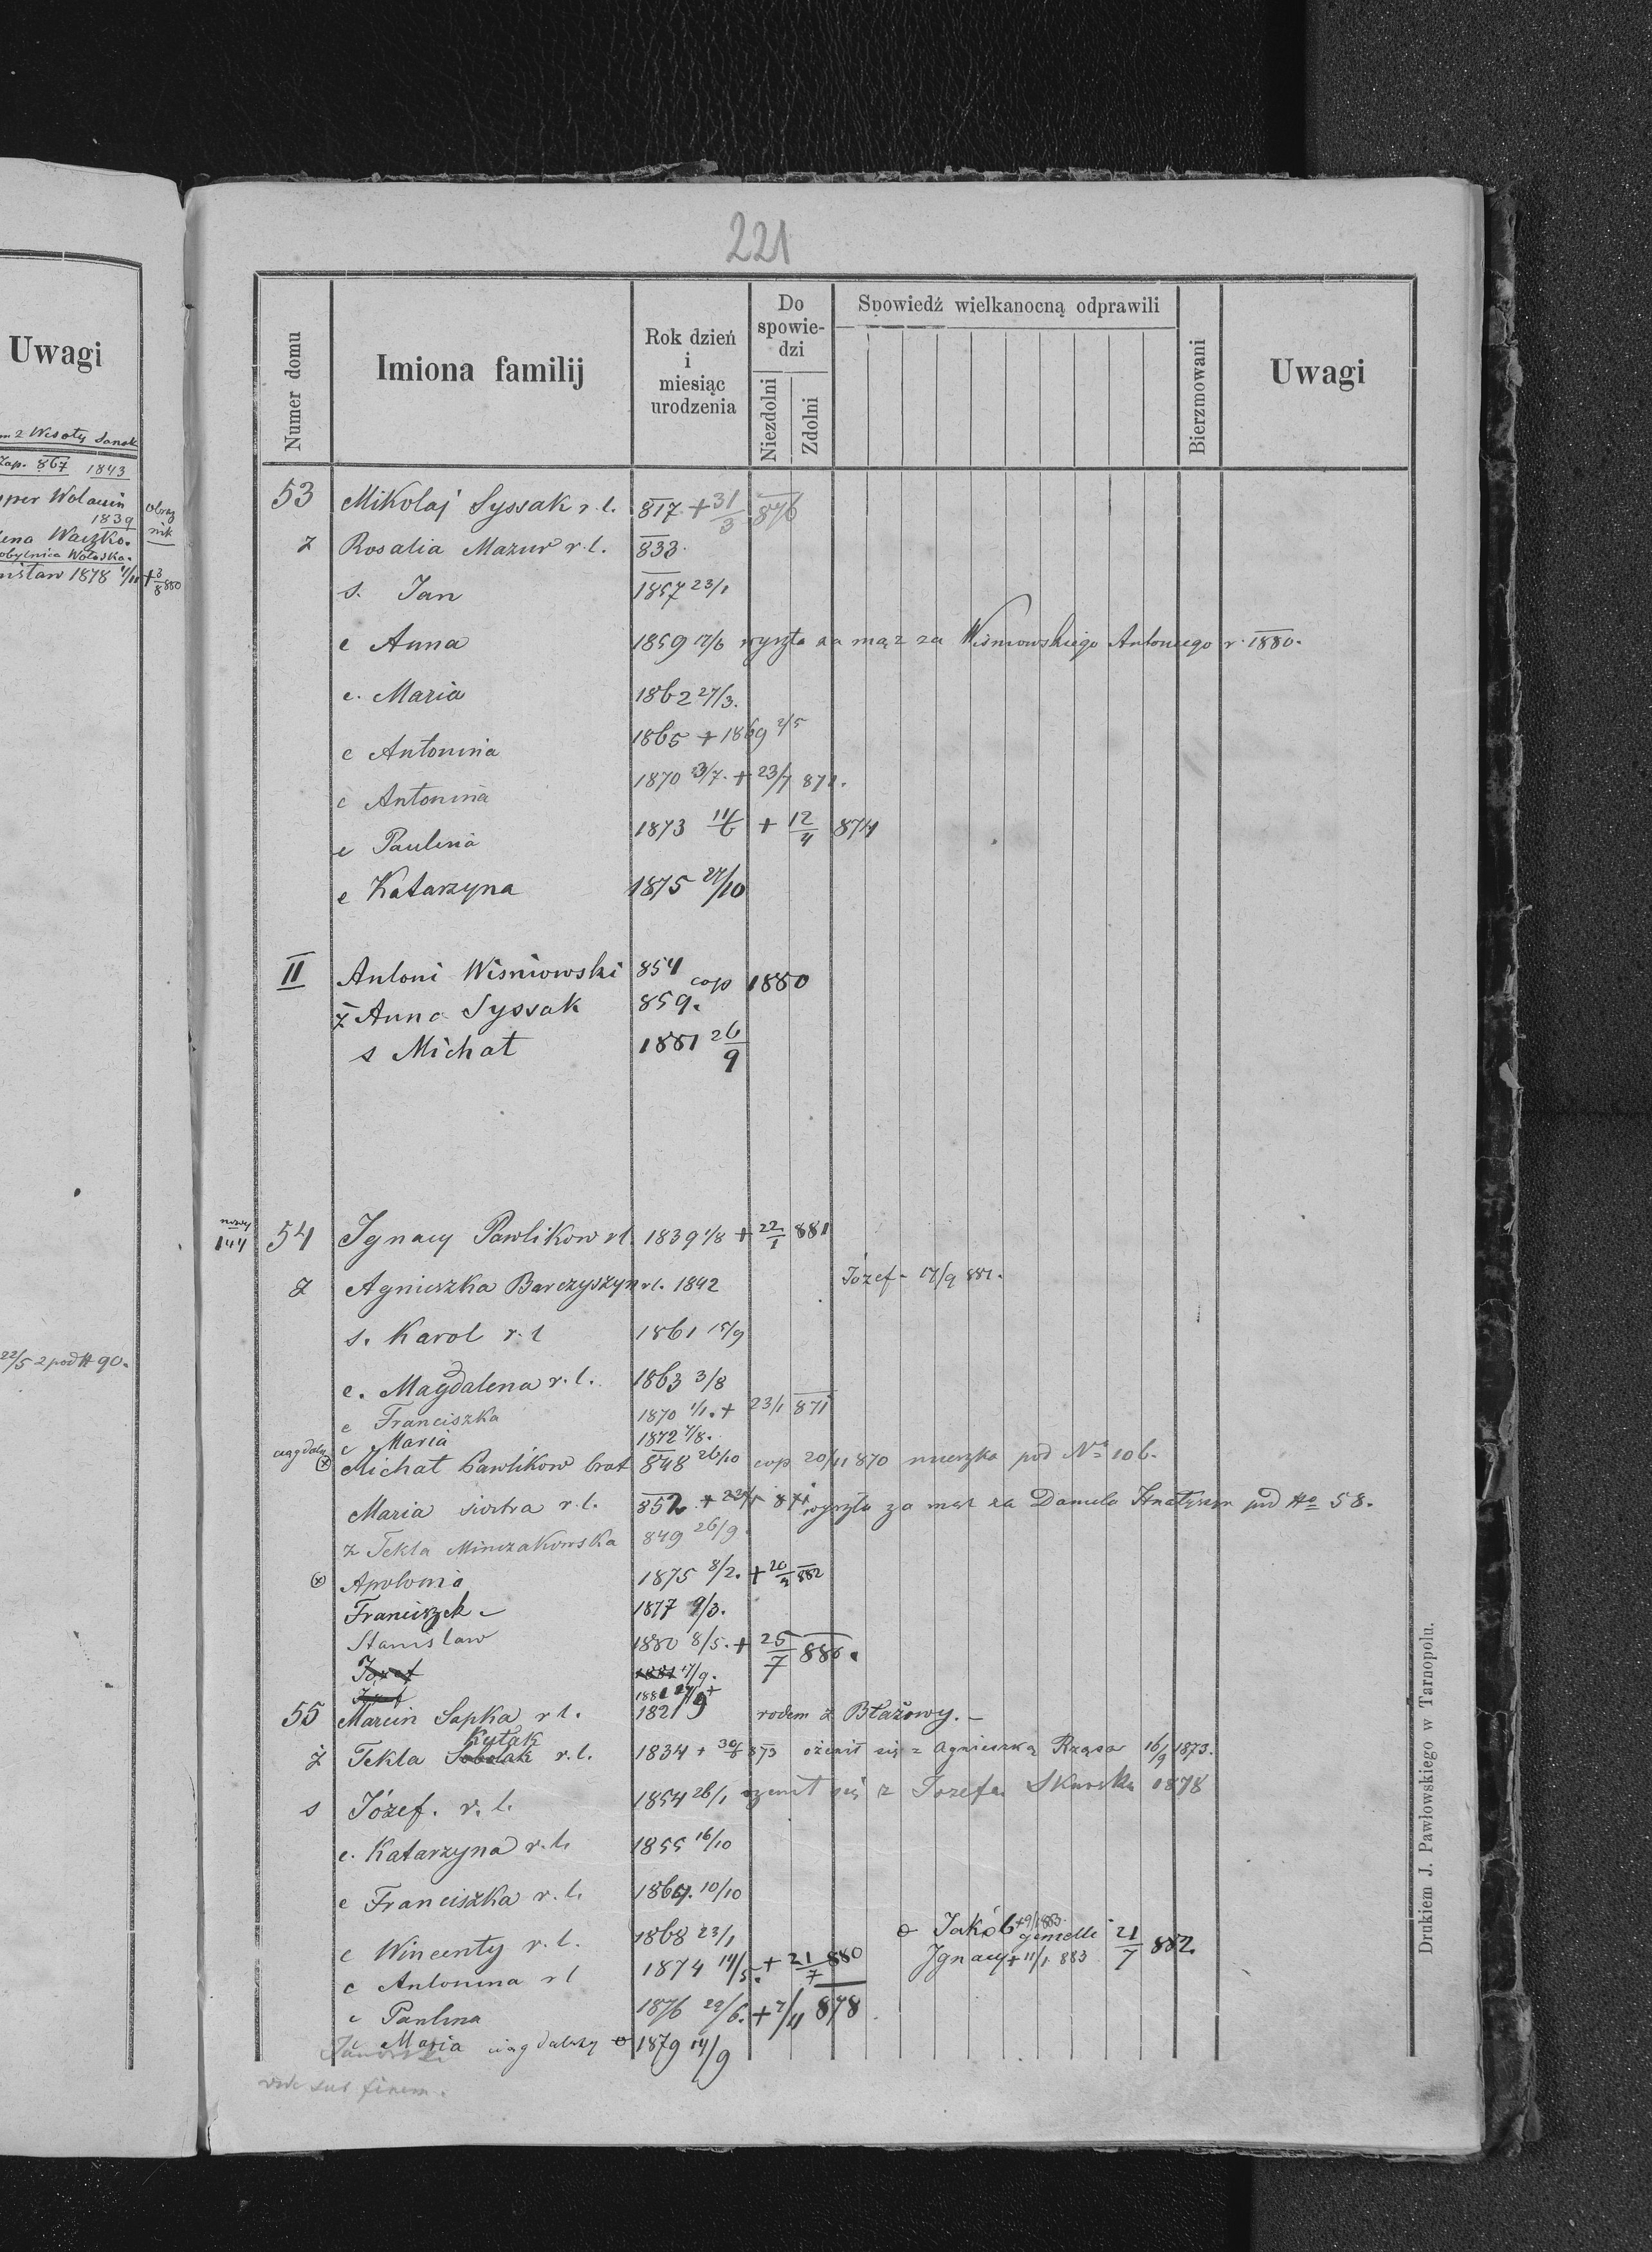 221
Uwagi
m z Wesoły Sanok
Zap. 867 1843
per Wolanin
1839
Obrz nik
ena Waczko.
obylnica Wołoska.
nisław 1878 + 3/8 880
22/5 2 pod # 90.
Numer domu
Imiona familij
Rok dzień i miesiąc urodzenia
Do spowiedzi
Niezdolni
Zdolni
Spowiedź wielkanocną odprawili
Bierzmowani
Uwagi
53 Mikolaj Syssak r. l. 817 + 31/3 876
ż Rosalia Mazur r. l. 833.
s. Jan 1857 23/1
c Anna 1859 17/6 wyszła za mąż za Wiśniowskiego Antoniego r. 1880.
c. Maria 1862 27/3.
c Antonina 1865 + 1869 2/5
c Antonina 1870 3/7. + 23/7 872.
c Paulina 1873 11/6 + 12/4 874
c Katarzyna 1875 27/10
II Antoni Wisniowski 854 cop 1880
ż Anna Syssak 859.
s Michał 1881 26/9
nowy 144
54 Ignacy Pawlikow rl. 1839 1/8 + 22/1 881
ż Agnieszka Barczyszyn r l. 1842 Józef - 17/9 881.
s. Karol r. l 1861 15/9
c. Magdalena r. l. 1863 3/8
c Franciszka 1870 1/1. + 23/1 871
c Maria 1872 7/8.
ciąg dalszy
Michał Pawlikow brat 848 26/10 cop 20/11 870 mieszka pod No 106.
Maria siostra r. l. 852 wyszła za mąż za Daniela Hnatyszyn pod No 58.
ż Tekla Minczakowska 849 26/9.
Apolonia 1875 8/2. + 20/4 882
Franciszek 1877 9/3.
Stanislaw 1880 8/5. + 25/7 880.
Józef 1881 17/9.
Józef 1881 17/9 +
55 Marcin Sapka r l. 1821 rodem z Błażowy. -
Kytak
ż Tekla Sobolak r. l. 1834 + 30/6 873 ożenił się z Agnieszką Rząsa 16/9 1873.
s Józef. r. l. 1854 26/1 ozenił się z Jozefa Skarska 1878
c. Katarzyna r. l. 1855 16/10
c Franciszka r. l. 1864. 10/10
c Wincenty r. l. 1868 23/1
Jakób + 9/1 883. gemelli 21/7 882.
Ignacy + 11/1 883
c Antonina r l 1874 14/5. + 21/7 880
c Paulina 1876 29/6. + 7/11 878
c Maria ciąg dalszy 1879 14/9
vide sub finem.
Drukiem J. Pawłowskiego w Tarnopolu.